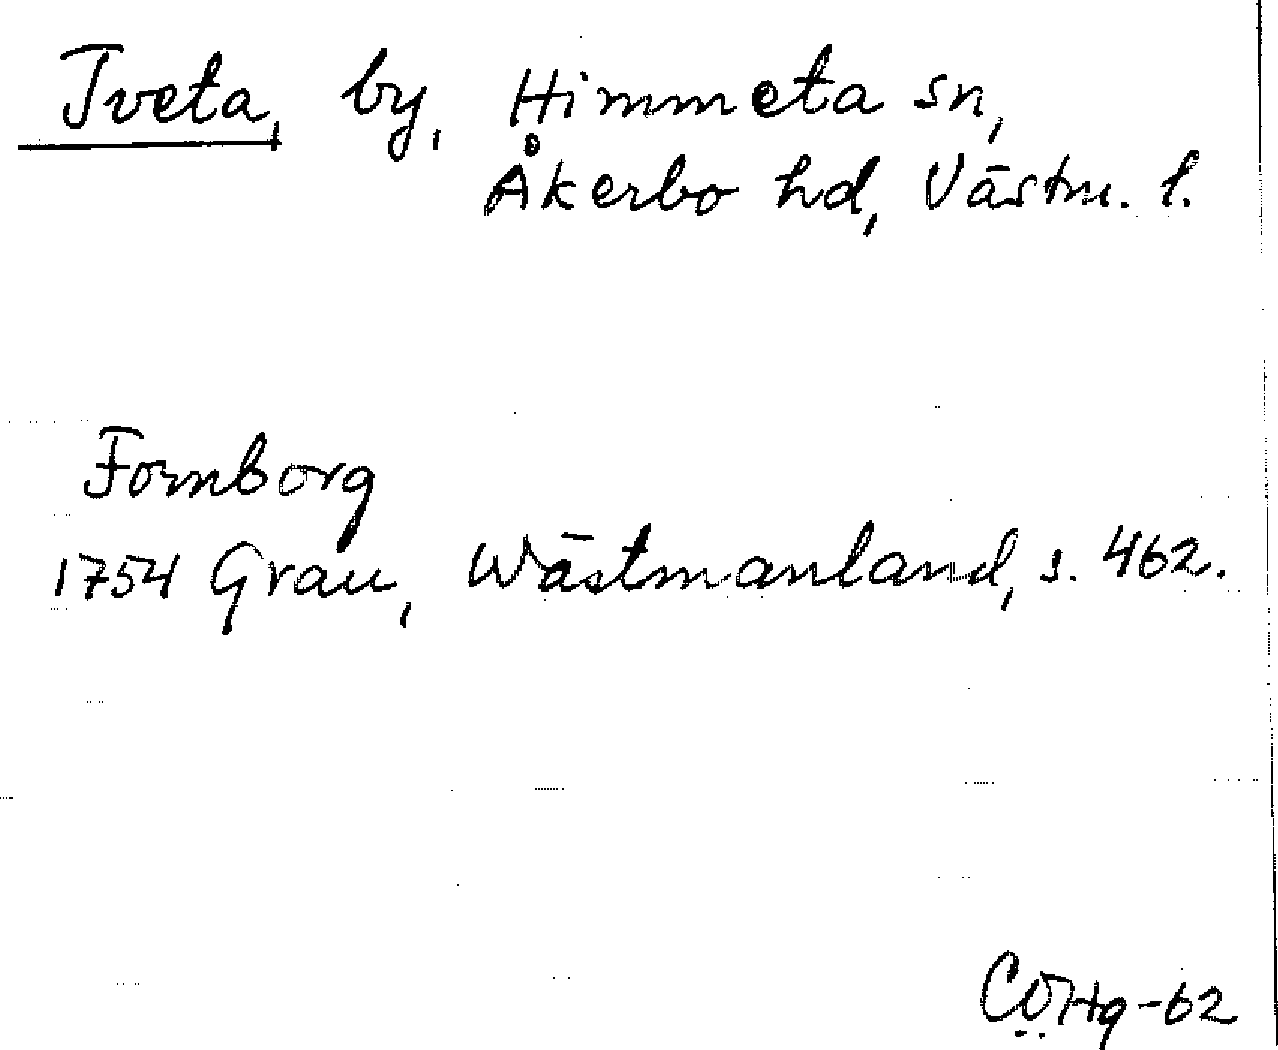 Tveta, by, Himmeta sn,
Åkerbo hd, Västm. l.
Fornborg
1754 Grau, Wästmanland, s. 462.